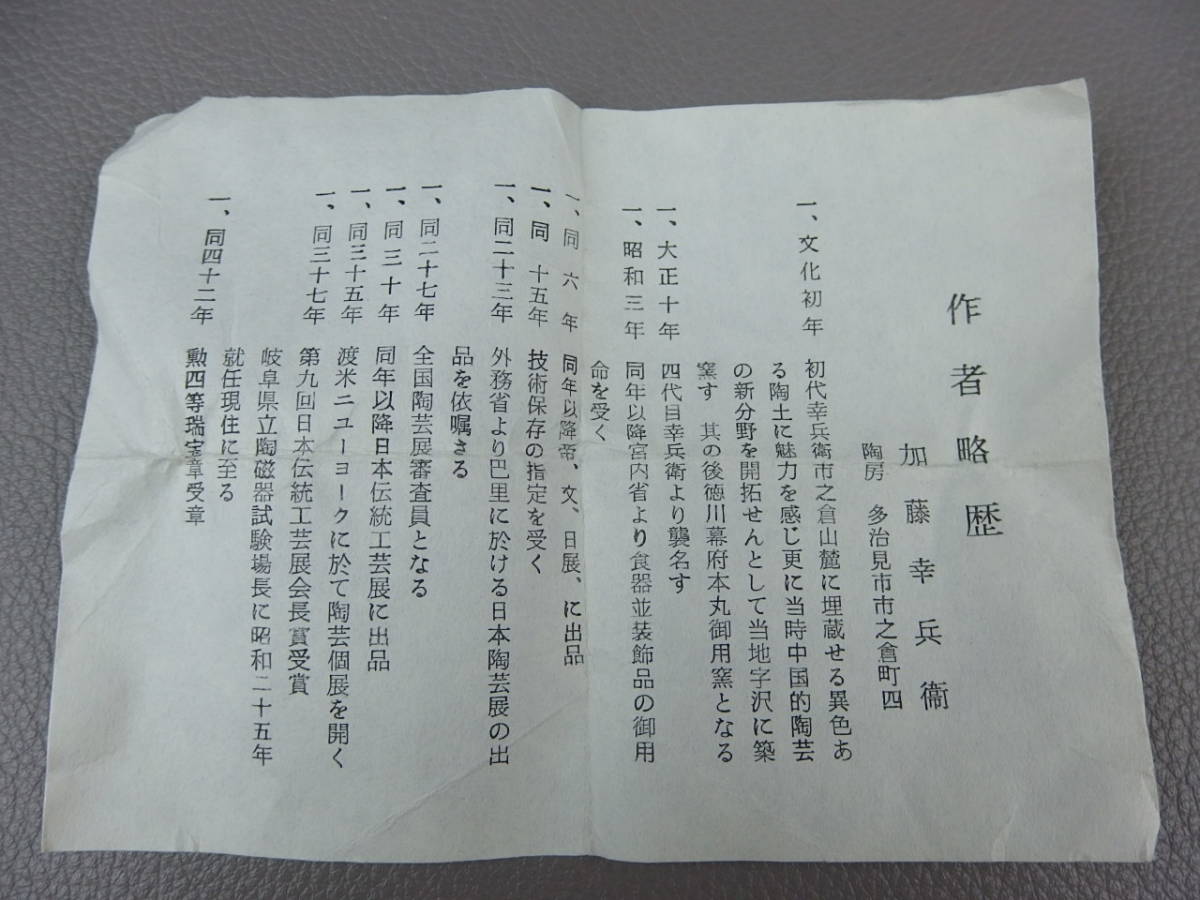 作者略歴
加藤幸兵衞
陶房 多治見市市之倉町四
一、文化初年 初代幸兵衛市之倉山麓に埋蔵せる異色あ
る陶土に魅力を感じ更に当時中国的陶芸
の新分野を開拓せんとして当地字沢に築
窯す 其の後徳川幕府本丸御用窯となる
一、大正十年 四代目幸兵衛より襲名す
一、昭和三年 同年以降宮内省より食器並装飾品の御用
命を受く
一、同六年 同年以降帝、文、日展、に出品
一、同十五年 技術保存の指定を受く
一、同二十三年 外務省より巴里に於ける日本陶芸展の出
品を依嘱さる
一、同二十七年 全国陶芸展審査員となる
一、同三十年 同年以降日本伝統工芸展に出品
一、同三十五年 渡米ニューヨークに於て陶芸個展を開く
一、同三十七年 第九回日本伝統工芸展会長賞受賞
岐阜県立陶磁器試験場長に昭和二十五年
就任現住に至る
一、同四十二年 勲四等瑞宝章受章